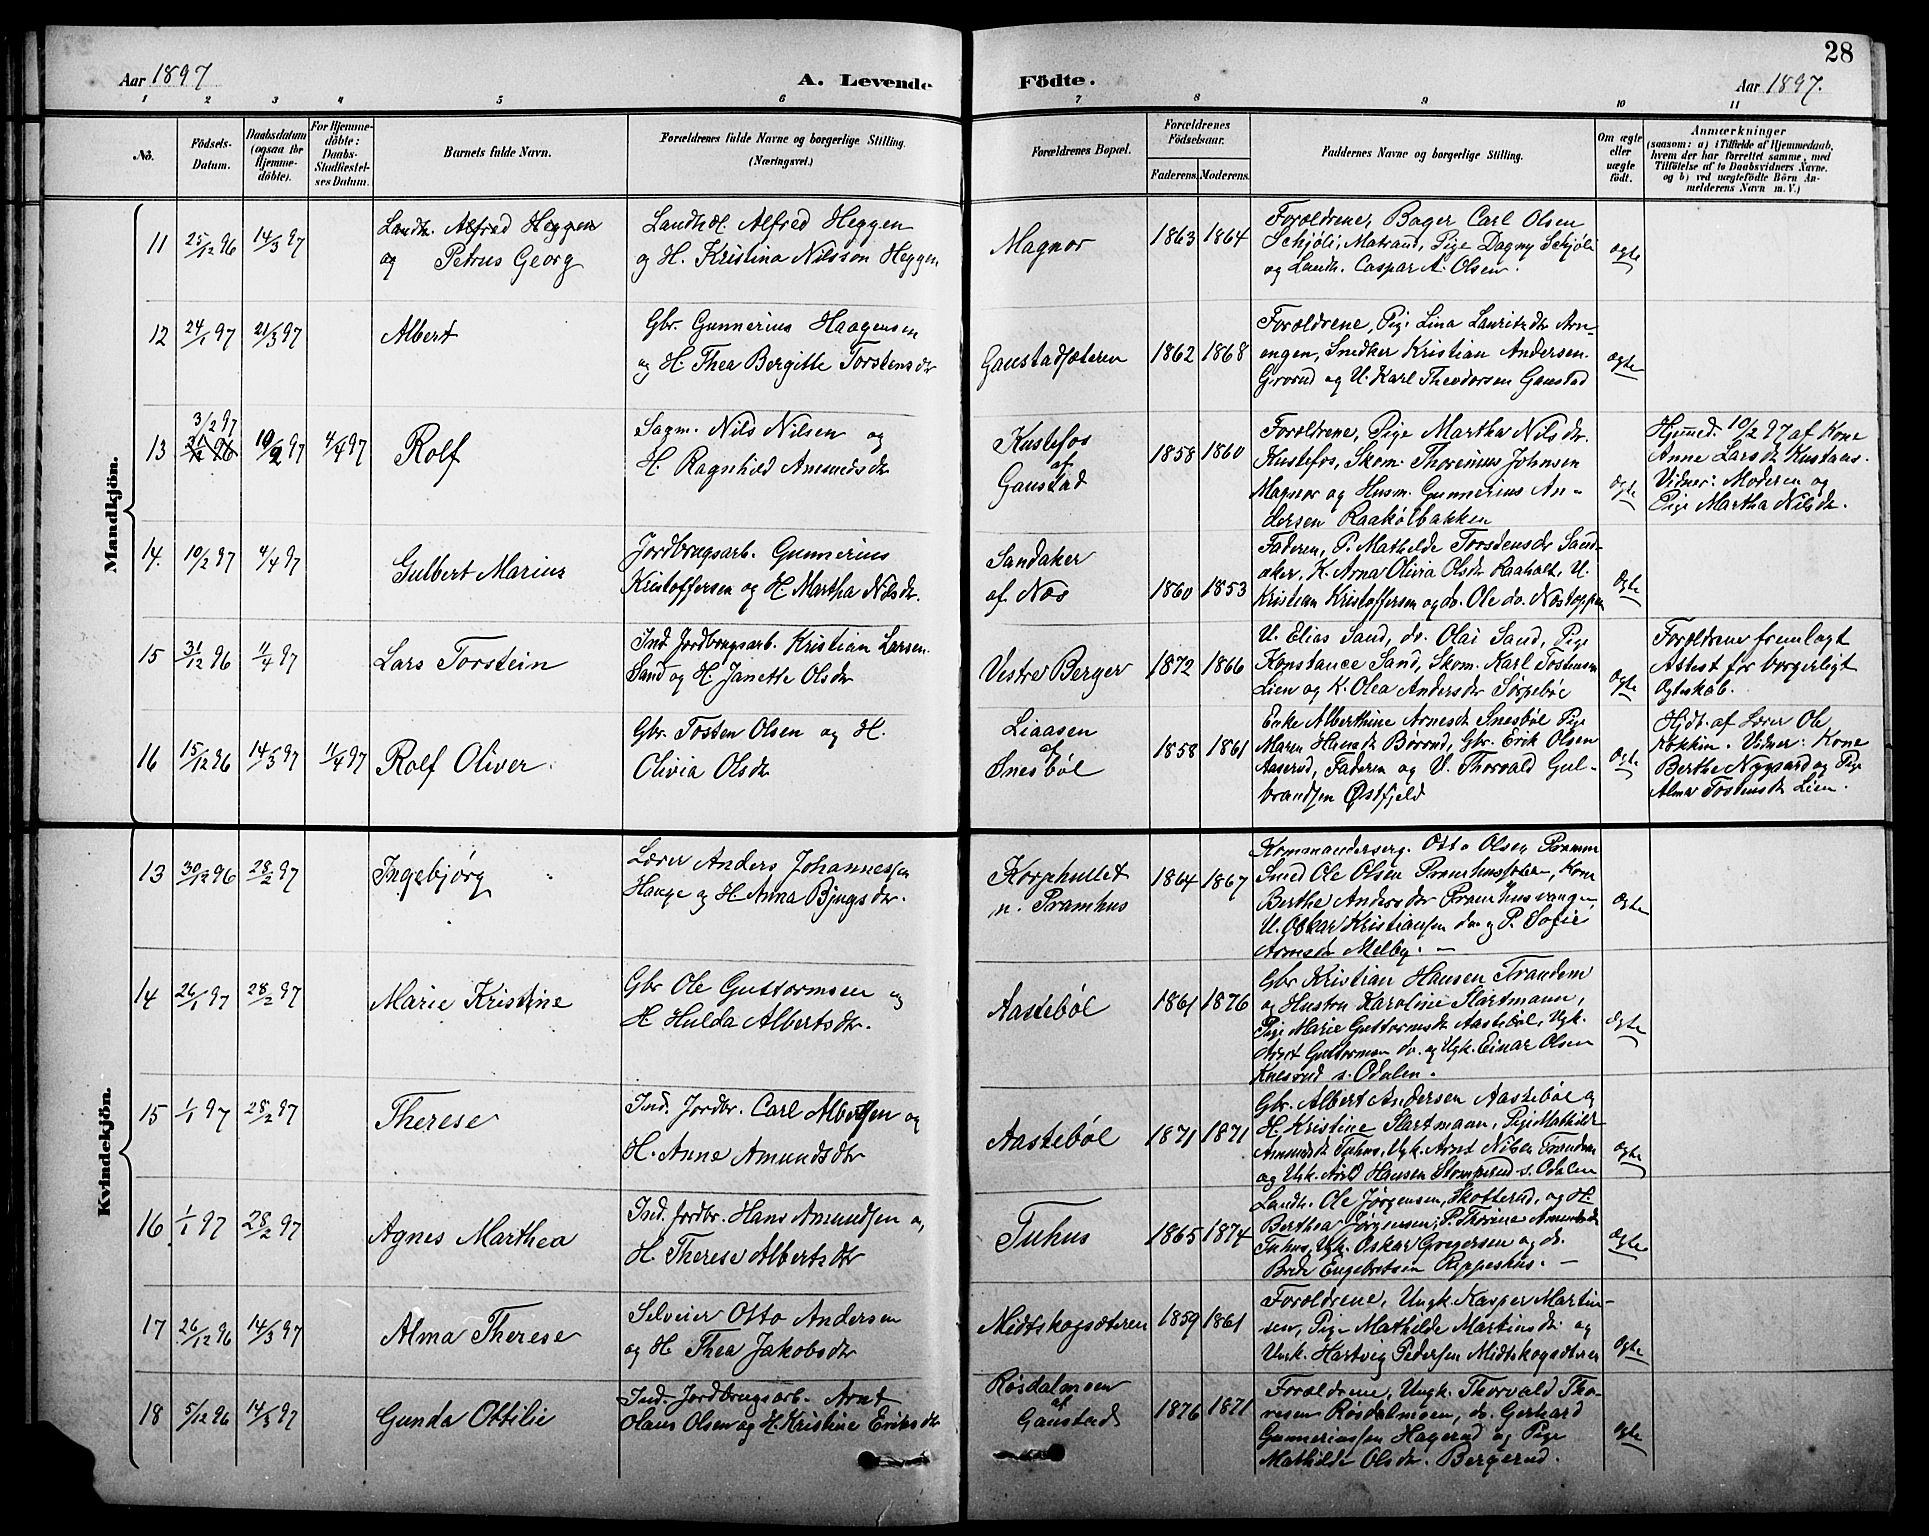 28
Aar 1897
A. Levende
Födte.
Aar 1897.
1 2 3 4 5 6 7 8 9 10 11
No.
Födsels-
Datum.
Daabsdatum
(ogsaa for
Hjemme-
döbte).
For Hjemme-
döbte:
Daabs-
Stadfæstel-
ses Datum.
Barnets fulde Navn.
Forældrenes fulde Navne og borgerlige Stilling.
(Næringsvei.)
Forældrenes Bopæl.
Forældrenes
Födselsaar.
Faderens. Moderens.
Faddernes Navne og borgerlige Stilling.
Om ægte
eller
uægte
födt.
Anmærkninger
(saasom: a) i Tilfælde af Hjemmedaab,
hvem der har forrettet samme, med
Tilföielse af to Daabsvidners Navne.
og b) ved uægtefödte Börn An-
melderens Navn m. V.)
Mandkjön.
11
25/12 96
14/3 97
Landh. Alfred Heggen
og Petrus Georg
Landh. Alfred Heggen
og H. Kristina Nilsson Heggen
Magnor
1863 1864
Forældrene, Bager Carl Olsen
Schjöli, Matrand, Pige Dagny Schjöli
og Landh. Caspar A. Olsen.
ægte
12
24/1 97
21/3 97
Albert
Gbr. Gunnerius Haagensen
og H. Thea Bergitte Torstensdr
Gaustadsæteren
1862 1868
Forældrene, Pige Lina Lauritzdr Arn-
engen, Snedker Kristian Andersen
Grorud og U. Karl Theodorsen Gaustad
ægte
13
3/2 97
10/2 97
4/4 97
Rolf
Sagm. Nils Nilsen og
H. Ragnhild Amundsdr
Kustefos
af
Gaustad
1858 1860
Forældrene, Pige Martha Nilsdr.
Kustefos, Skom. Thorenius Johnsen
Magnor og Husm. Gunnerius An-
dersen Raakölbakken
ægte
Hjemmed. 10/2 97 af Kone
Anne Larsdr
Vidner: Moderen og
Pige Martha Nilsdr.
14.
10/2 97
4/4 97
Gulbert Marius
Jordbrugsarb. Gunnerius
Kristoffersen og H. Martha Nilsdr.
Sandaker
af Nos
1860 1853
Faderen, P. Mathilde Torstensdr Sand-
aker, K. Anna Olivia Olsdr Raaholt, U.
Kristian Kristoffersen og do. Ole do. Nostoppen
ægte
15
31/12 96
11/4 97
Lars Torstein
Ind. Jordbrugsarb. Kristian Larsen
Sand og H. Janette Olsdr
Vestre Berger
1872 1866
U. Elias Sand, do. Olai Sand, Pige
Konstance Sand, Skom. Karl Tostensen
Lien og K. Olea Andersdr Sörpeböl
ægte
Forældrene fremlagt
Attest for borgerligt
Ægteskab.
16
15/12 96
14/3 97
11/4 97
Rolf Oliver
Gbr. Tosten Olsen og H.
Olivia Olsdr
Liaasen
af
Snesböl
1858 1861
Enke Alberthine Arnesdr Snesböl Pige
Maren Hansdr Börrud, Gbr. Erik Olsen
Aaserud, Faderen og U. Thorvald Gul-
brandsen Östfjeld
ægte
Hjdt. af Lærer Ole
Kokkin. Vidner: Kone
Berthe Nygaard og Pige
Alma Tostensdr Lien.
Kvindekjön.
13
30/12 96
28/2 97
Ingebjörg
Lærer Anders Johannessen
Hauge og H. Anna Bjugsdr.
Korphullet
n. Pramhus
1864 1867
Kommandersergt. Otto Olsen Pramm
Smed Ole Olsen Pramhussæter, Kone
Berthe Andersdr Pramhusvangen
U. Oskar Kristiansen do. og P. Sofie
Arnesdr Melby. —
ægte
14
26/1 97
28/2 97
Marie Kristine
Gbr Ole Guttormsen og
H. Hulda Albertsdr.
Aasteböl
1861 1876
Gbr Kristian Hansen Trandem
og Hustru Karoline Slartmann,
Pige Marie Guttormsdr Aasteböl, Ugk.
Arnt Guttormsen do. og Ugk. Einar Olsen
Knesrud s. Odalen.
ægte
15
1/1 97
28/2 97
Therese
Ind. Jordbr. Carl Albertsen og
H. Anne Amundsdr
Aasteböl
1871 1871
Gbr. Albert Andersen Aasteböl og
H. Kristine Slartmann, Pige Mathilde
Amundsdr Tuhus, Ugk. Arnt Nilsen Trandem
og Ugk. Arnt Hansen Stomperud s. Odalen
ægte
16
1/1 97
28/2 97
Agnes Marthea
Ind. Jordbr. Hans Amundsen og
H. Therese Albertsdr
Tuhus
1865 1874
Landh. Ole Jörgensen, Skotterud, og H.
Berthea Jörgensen, P. Thorine Amundsdr
Tuhus, Ugk. Oskar Gregersen og do.
Brede Engebretsen Rippeshus. —
ægte
17
26/12 96
14/3 97
Alma Therese
Selveier Otto Andersen
og H. Thea Jakobsdr
Midtskogsæteren
1859 1861
Forældrene, Ungk. Kasper Martin-
sen, Pige Mathilde Martinsdr og
Ungk. Hartvig Pedersen Midtskogsæteren
ægte
18
5/12 96
14/3 97
Gunda Ottilie
Ind. Jordbrugsarb. Arnt
Olaus Olsen og H. Kristine Eriksdr
Rösdalmoen
af
Gaustad
1876 1871
Forældrene, Ungk. Thorvald Tho-
resen Rösdalmoen, do. Gerhard
Gunneriussen Hagerud og Pige
Mathilde Olsdr. Bergerud.
ægte